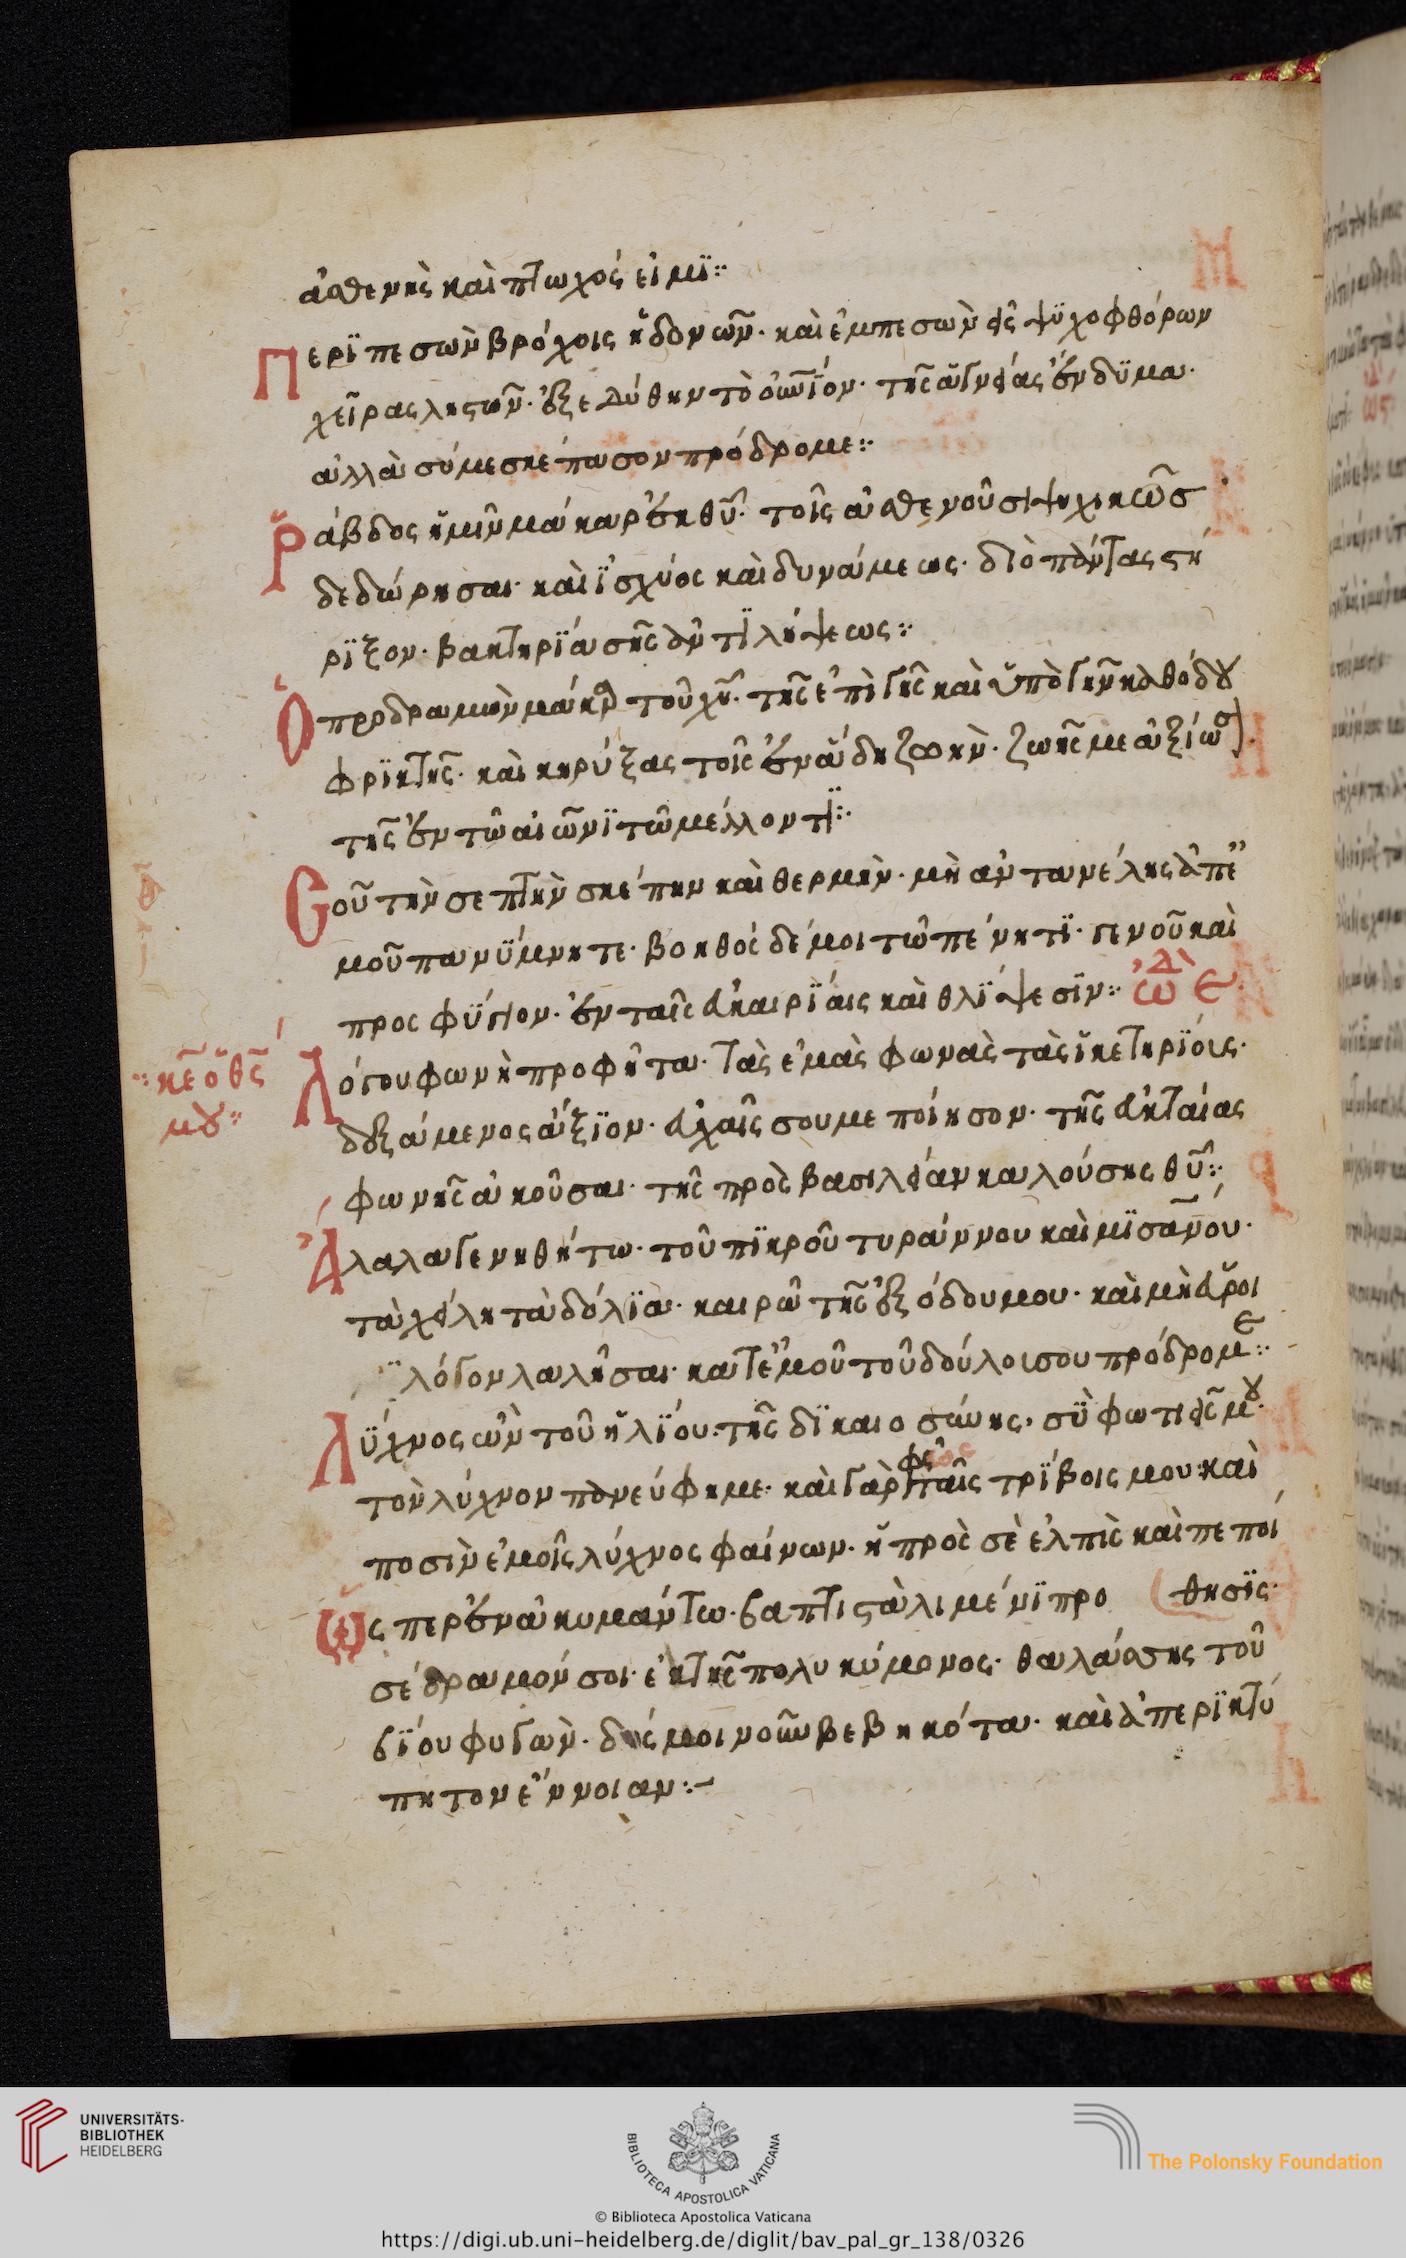 ἀσθενὴς καὶ πτωχός εἰμϊ··
Περϊπεσὼν βρόχοις ἡδονῶν· καὶ ἐμπεσὼν εἰς ψϋχοφθόρων
χεῖρας ληστῶν· ἐξεδύθην τὸ
τῆς ἁγνείας ἔνδϋμα·
ἀλλὰ σύ με σκέπασον πρόδρομε··
Ῥάβδος ἡμῖν μάκαρ ἐκ θυ· τοῖς ἀσθενοῦσι ψυχικῶσ
δεδώρησαι· καὶ ϊσχύος καὶ δυνάμεως· διὸ πάντας στή
ρϊξον· βακτηρϊά σῆς ἀντϊλήψεως··
Ὁ προδραμὼν μάκαρ τοῦ χυ· τῆς ἐπὶ γῆς καὶ ὑπὸ γῆν καθόδου
φρϊκτῆς· καὶ κηρύξας τοῖς ἐν ἅδη ζωὴν· ζωῆς με ἀξίωσον·
τῆς ἐν τῶ αἰῶνϊ τῶ μέλλοντϊ··
Σοῦ τὴν σεπτὴν σκέπην καὶ θερμὴν· μὴ ἀντανέλης ἀπ' ἐ
μοῦ πανϋμνητε· βοηθός δέ μοι τῶ πένητϊ· γενοῦ καὶ
προσφϋγιον· ἐν ταῖς ἀκαιρϊαις καὶ θλϊψεσϊν·· ὠδὴ ε·
··κε ὁ θς
μου··
Λόγου φωνὴ προφῆτα· τὰς ἐμὰς φωνὰς τὰς ἱκετηρϊοις·
δεξάμενος ἄξϊον· εὐχαῖς σου με ποίησον· τῆς εὐκταίας
φωνῆς ἀκοῦσαι· τῆς πρὸς βασιλείαν καλούσης θυ··
Ἄλαλα γενηθήτω· τοῦ πϊκροῦ τυράννου καὶ μϊσάνου·
τὰ χείλη τὰ δόλϊα· καιρῶ τῆς ἐξόδου μου· καὶ μὴ εὕροι
λόγον λαλῆσαι· κατ' ἐμοῦ τοῦ δούλοι σου πρόδρομε··
Λϋχνος ὢν τοῦ ἡλϊου· τῆς δϊκαιοσύνης· σϋ φωτιεῖς μου·
τὸν λύχνον πανεύφημε· καὶ γὰρ φῶς ταῖς τρϊβοις μου· καὶ
ποσὶν ἐμοῖς λύχνος φαίνων· ἡ πρὸς σὲ ἐλπὶς καὶ πεποί
θησϊς·
Ὥσπερ ἐν ἀκυμάντω· βαπτιστὰ λιμένϊ προ
σέδραμόν σοι· ἐκ τῆς πολυκύμονος· θαλάσσης τοῦ
βϊου φυγὼν· δός μοι νοῦν βεβηκότα· καὶ ἀπερϊκτύ
πητον ἔννοιαν··
UNIVERSITÄTS-
BIBLIOTHEK
HEIDELBERG
BIBLIOTECA APOSTOLICA VATICANA
The Polonsky Foundation
© Biblioteca Apostolica Vaticana
https://digi.ub.uni-heidelberg.de/diglit/bav_pal_gr_138/0326